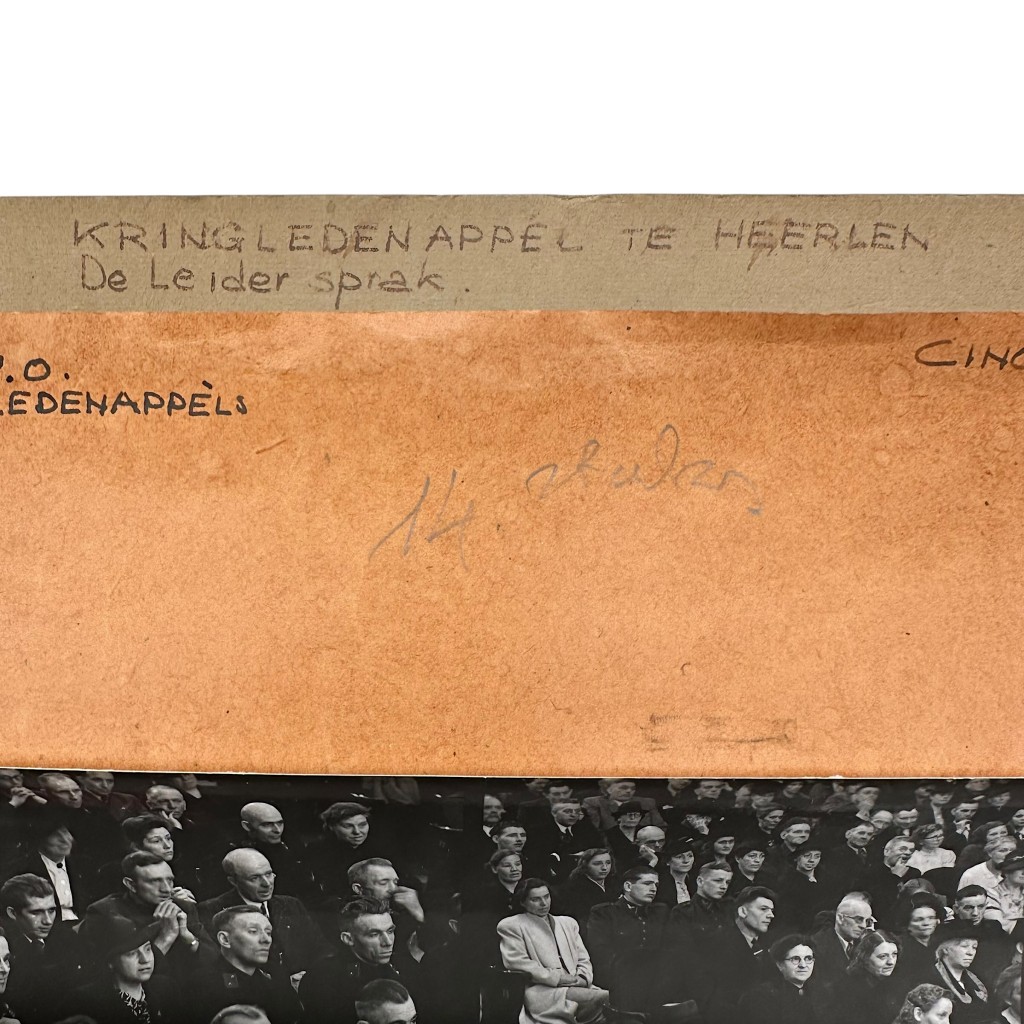 KRINGLEDENAPPÉL TE HEERLEN
De Leider sprak.
.O.
LEDENAPPÈLS
CINO
14